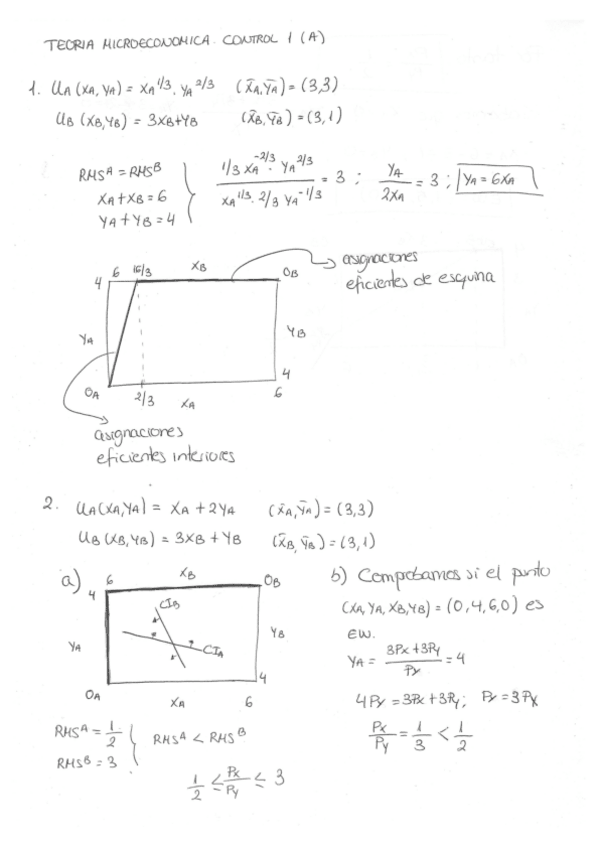 TEORIA MICROECONOMICA. CONTROL 1 (A)
1. UA (XA, YA) = XA^1/3 · YA^2/3 (X̄A, ȲA) = (3,3)
UB (XB, YB) = 3XB+YB (X̄B, ȲB) = (3,1)
RMS^A = RMS^B
XA + XB = 6
YA + YB = 4
1/3 XA^-2/3 · YA^2/3 / XA^1/3 · 2/3 YA^-1/3 = 3 ; YA / 2XA = 3 ; YA = 6XA
asignaciones
eficientes de esquina
4 6 16/3 XB OB
YA YB
4
OA 2/3 XA 6
asignaciones
eficientes interiores
2. UA(XA, YA) = XA + 2YA (X̄A, ȲA) = (3,3)
UB (XB, YB) = 3XB + YB (X̄B, ȲB) = (3,1)
a)
4 6 XB OB
CIB
YA YB
CIA
4
OA XA 6
RMS^A = 1/2
RMS^B = 3
RMS^A < RMS^B
1/2 ≤ Px/Py ≤ 3
b) Comprobamos si el punto
(XA, YA, XB, YB) = (0,4,6,0) es
EW.
YA = 3Px + 3Py / Py = 4
4Py = 3Px + 3Py ; Py = 3Px
Px/Py = 1/3 < 1/2